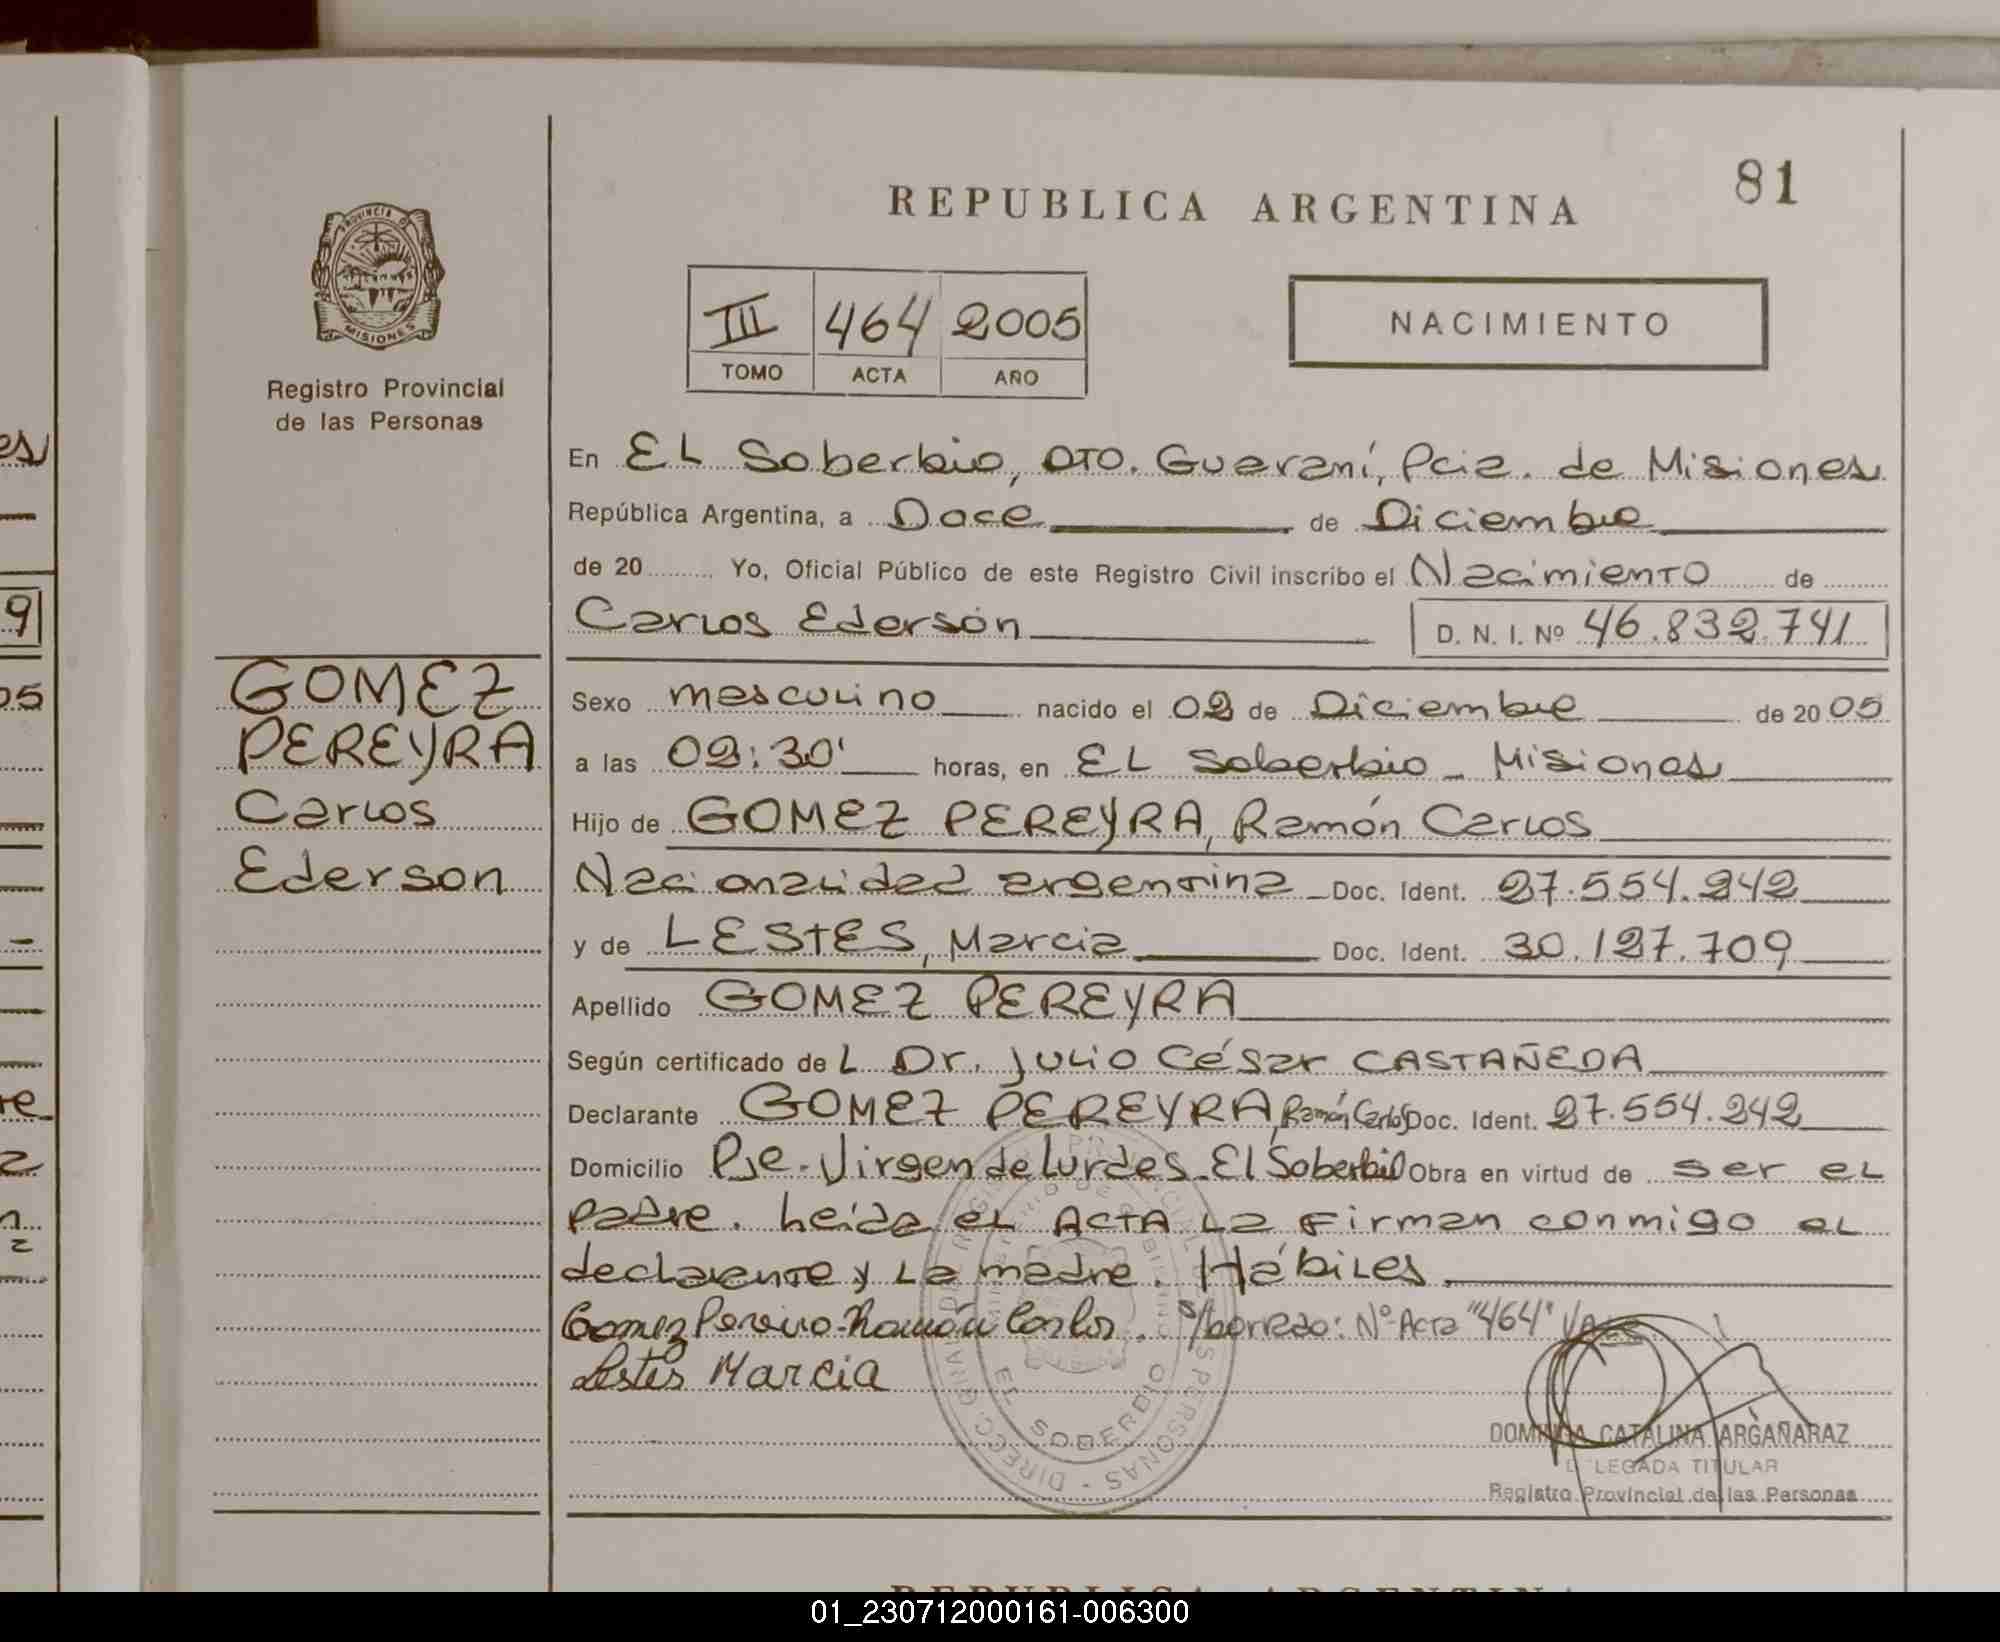 81
REPUBLICA ARGENTINA
PROVINCIA DE
MISIONES
Registro Provincial
de las Personas
III 464 2005
TOMO ACTA AÑO
NACIMIENTO
En EL Soberbio, DTO. Guaraní, Pcia. de Misiones
República Argentina, a Doce de Diciembre
de 20 Yo, Oficial Público de este Registro Civil inscribo el Nacimiento de
Carlos Edersón D. N. I. Nº 46.832.741
GOMEZ
PEREYRA
Carlos
Ederson
Sexo masculino nacido el 02 de Diciembre de 2005
a las 02:30' horas, en EL Soberbio - Misiones
Hijo de GOMEZ PEREYRA, Ramón Carlos
Nacionalidad argentina Doc. Ident. 27.554.242
y de LESTES, Marcia Doc. Ident. 30.127.709
Apellido GOMEZ PEREYRA
Según certificado de L Dr. Julio César CASTAÑEDA
Declarante GOMEZ PEREYRA, Ramón Carlos Doc. Ident. 27.554.242
Domicilio Pje. Virgen de Lurdes - El Soberbio Obra en virtud de ser el
padre. Leída el ACTA la firman conmigo el
declarante y la madre. Hábiles.
Gomez Pereira Ramón Carlos. s/borrado: Nº Acta "464" Vale
Lestes Marcia
EL SOBERBIO
DOMINGA CATALINA ARGAÑARAZ
DELEGADA TITULAR
Registro Provincial de las Personas
01_230712000161-006300